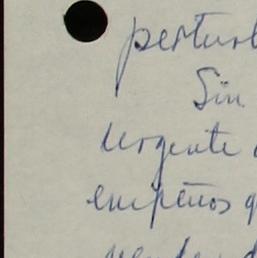 pertur
Sin
Urgente
empeños q